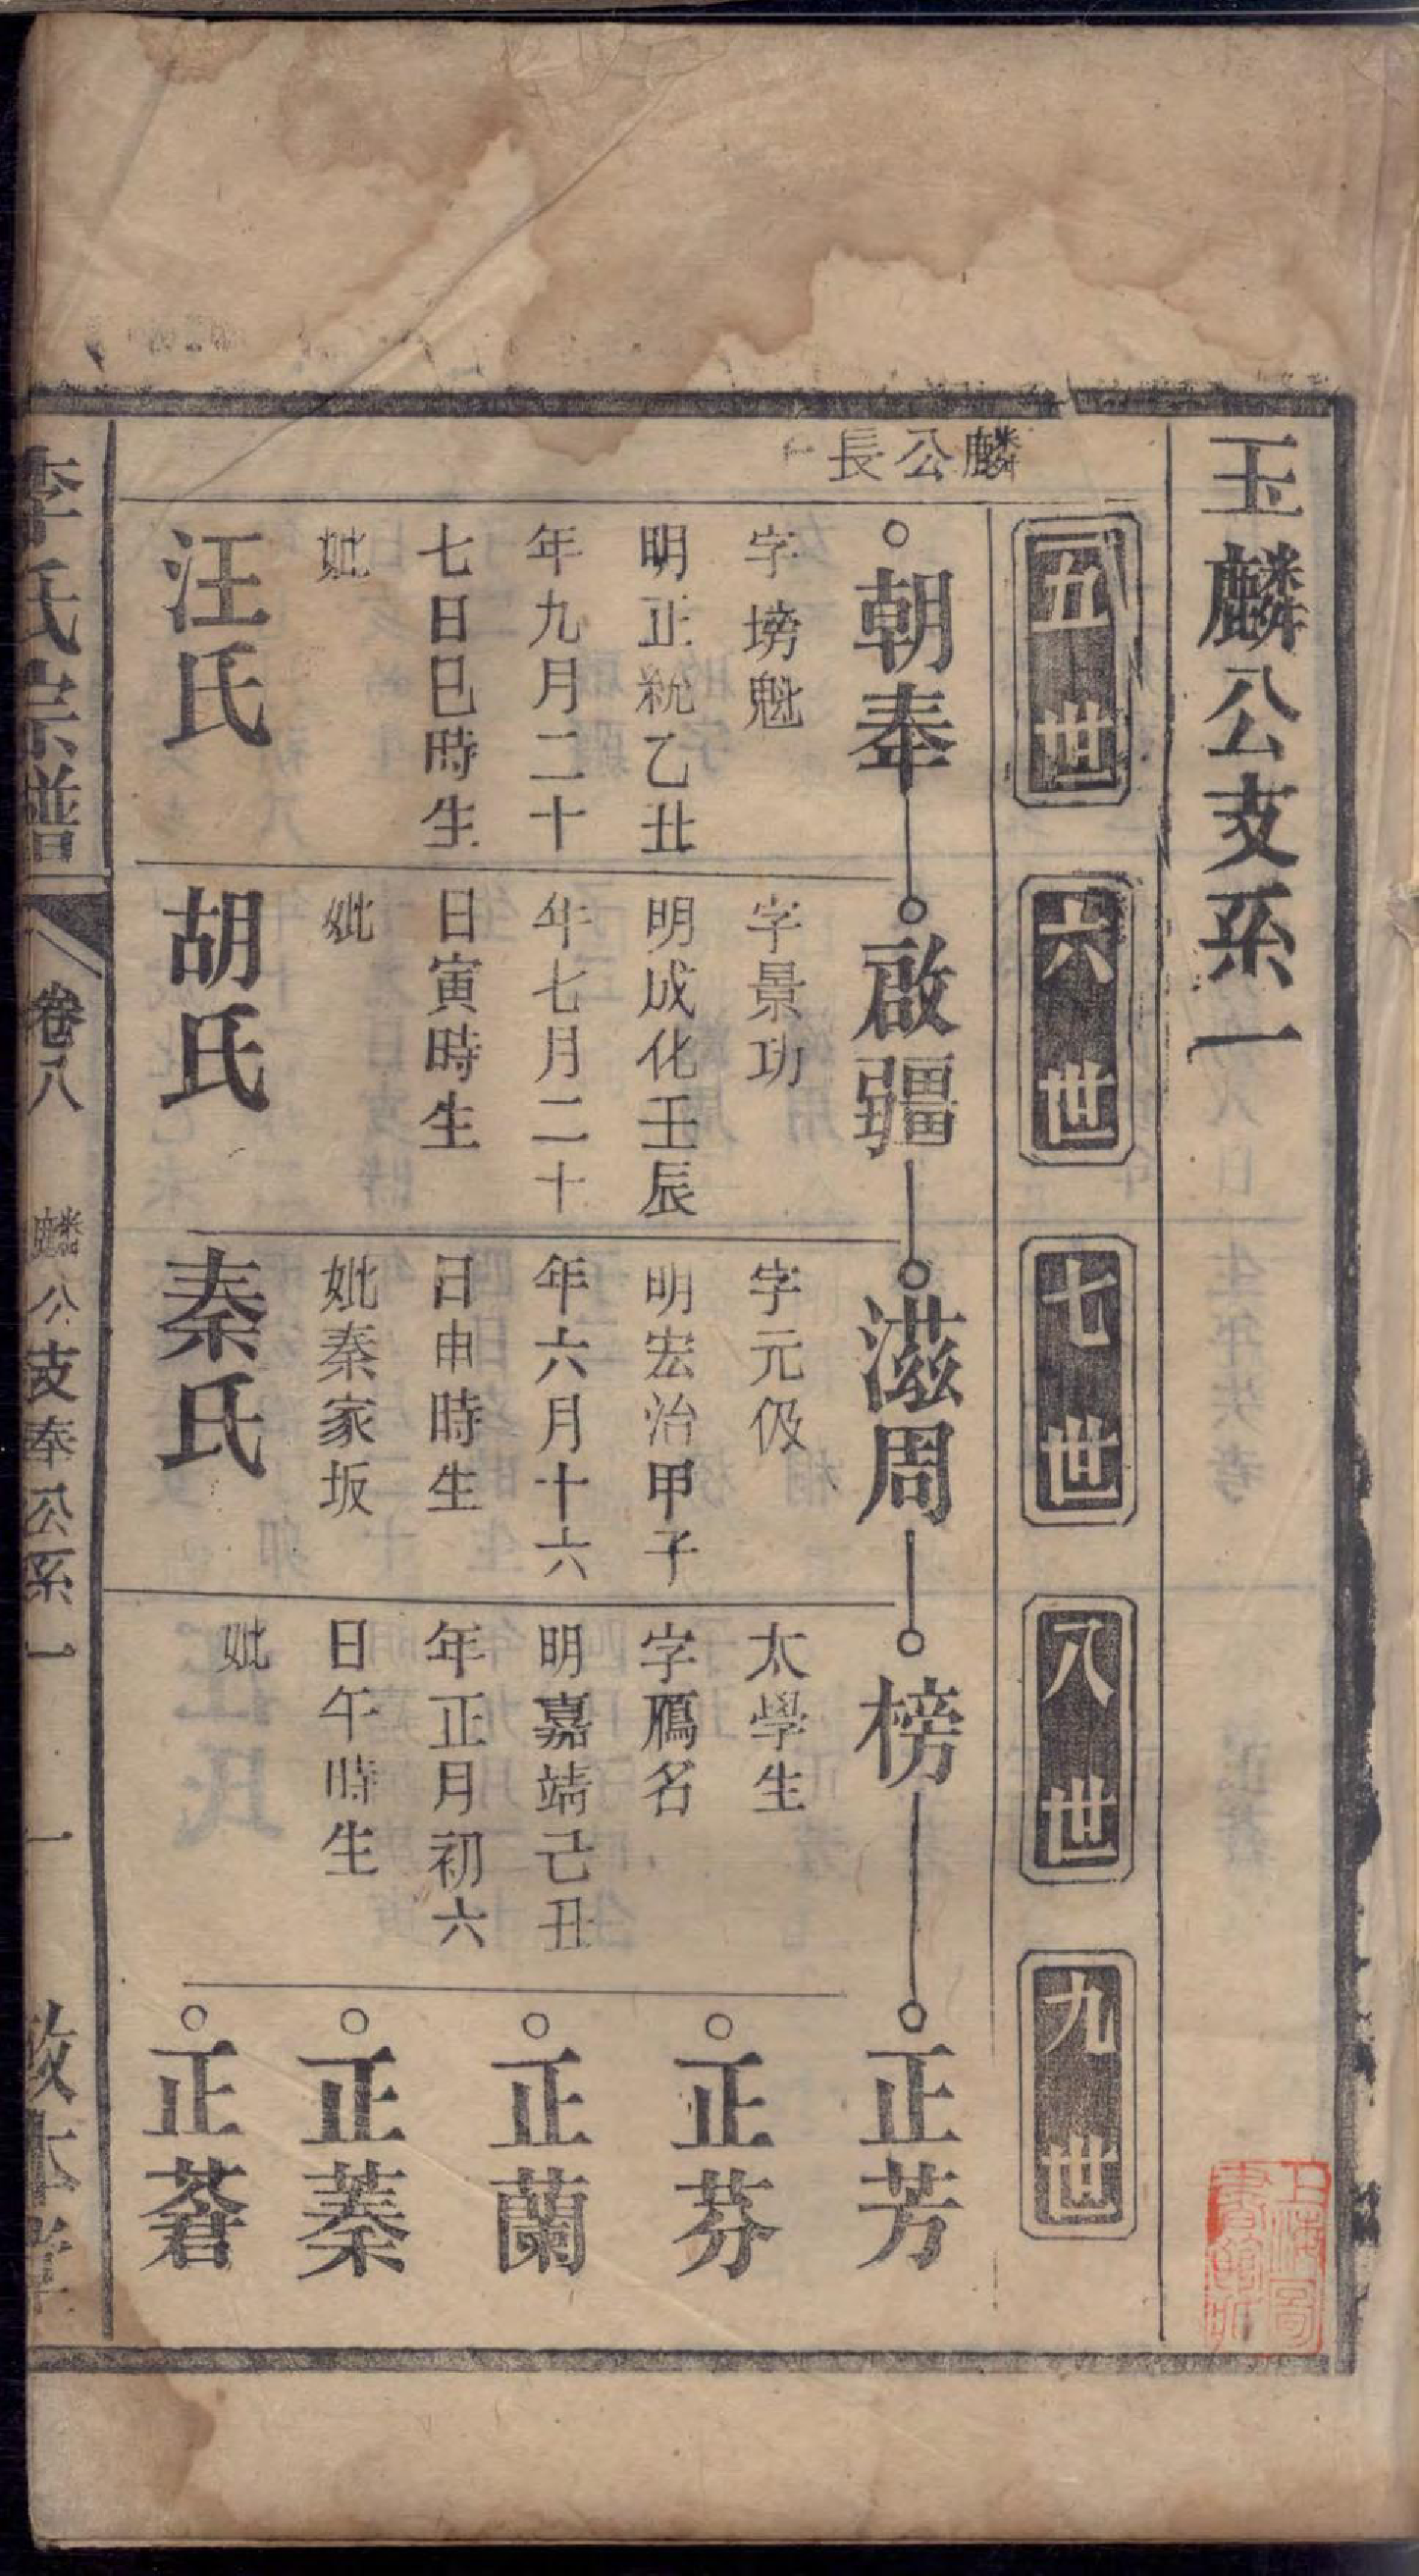 玉麟公支系一
五世
六世
七世
八世
九世
麟公長
朝奉
字塝魁
明正統乙丑
年九月二十
七日巳時生
妣
汪氏
啟疆
字景功
明成化壬辰
年七月二十
日寅時生
妣
胡氏
滋周
字元伋
明宏治甲子
年六月十六
日申時生
妣秦家坂
秦氏
榜
太學生
字鴈名
明嘉靖己丑
年正月初六
日午時生
妣
正芳
正芬
正蘭
正蓁
正蒼
李氏宗譜
卷八
麟公支奉公系一
一
敦本堂
上海圖
書館所